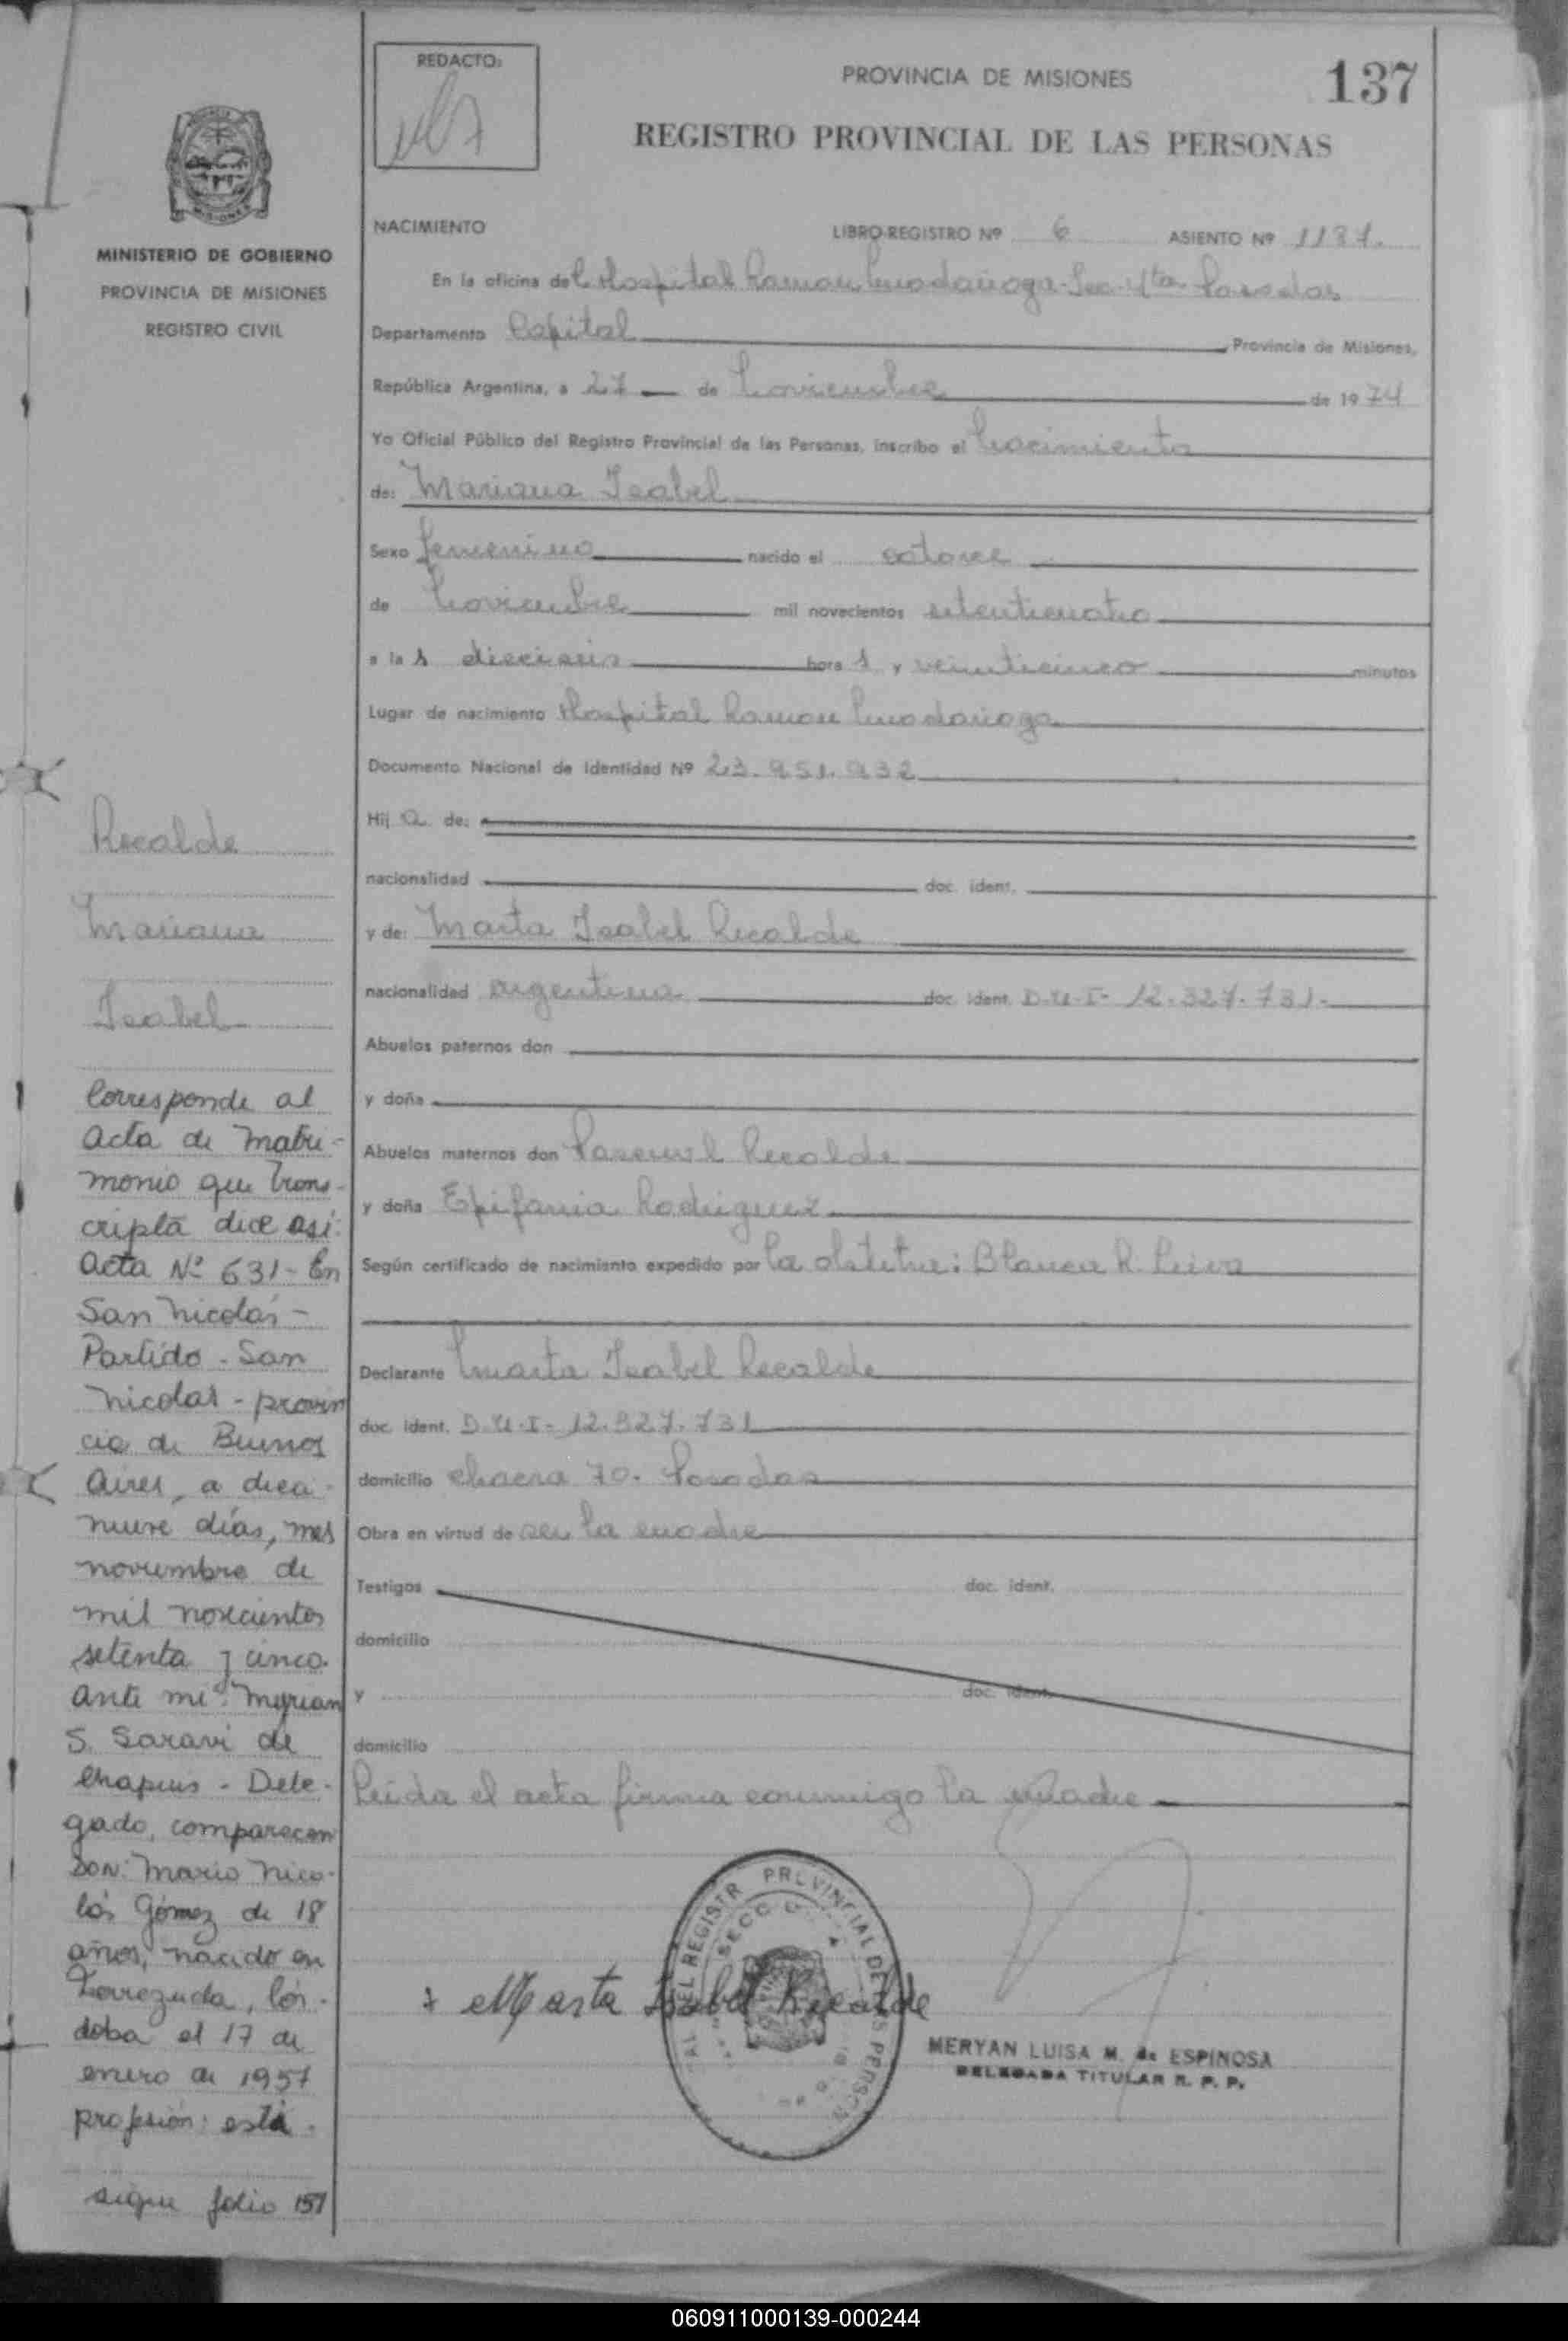 REDACTO:
PROVINCIA DE MISIONES
137
REGISTRO PROVINCIAL DE LAS PERSONAS
MINISTERIO DE GOBIERNO
PROVINCIA DE MISIONES
REGISTRO CIVIL
NACIMIENTO LIBRO-REGISTRO Nº 6 ASIENTO Nº 1137.
En la oficina del Hospital Ramon Madariaga-Sec-4ta Posadas
Departamento Capital Provincia de Misiones,
República Argentina, a 27 de Noviembre de 1974
Yo Oficial Público del Registro Provincial de las Personas, inscribo el Nacimiento
de: Mariana Isabel
Sexo femenino nacido el catorce
de Noviembre mil novecientos setenticuatro
a las dieciseis horas y veinticinco minutos
Lugar de nacimiento Hospital Ramon Madariaga
Documento Nacional de Identidad Nº 23.951.932
Hija de:
nacionalidad doc. ident.
y de: Marta Isabel Recalde
nacionalidad argentina doc. ident. D.U.I- 12.327.731-
Abuelos paternos don
y doña
Abuelos maternos don Pascual Recalde
y doña Epifania Rodriguez
Según certificado de nacimiento expedido por la obstetra: Blanca R. Leiva
Declarante Marta Isabel Recalde
doc. ident. D.U.I- 12.327.731
domicilio chacra 70. Posadas
Obra en virtud de ser la madre
Testigos doc. ident.
domicilio
y doc. ident.
domicilio
Leida el acta firma conmigo la madre
Marta Isabel Recalde
MERYAN LUISA M. de ESPINOSA
DELEGADA TITULAR R. P. P.
Recalde
Mariana
Isabel
Corresponde al
acta de matri-
monio que trans-
cripta dice así:
Acta Nº 631- En
San Nicolás-
Partido - San
Nicolas - provin
cia de Buenos
Aires, a dieci-
nueve días, mes
noviembre de
mil novecientos
setenta y cinco.
ante mí: Myrian
S. Saravi de
Chapuis - Dele-
gado, comparecen
DON: Mario Nico-
lás Gómez de 18
años, nacido en
Córdoba el 17 de
enero de 1957
profesión: está.
sigue folio 157
060911000139-000244